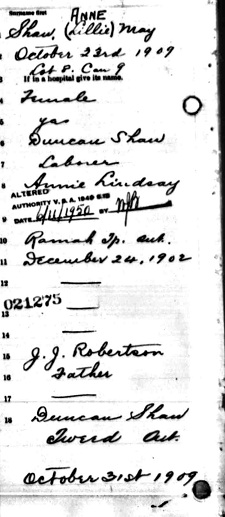 Surname first
ANNE
1 Shaw, (Lillie) May
2 October 23rd 1909
3 Lot 8. Con 9
If in a hospital give its name.
4 Female
5 yes
6 Duncan Shaw
7 Laborer
8 Annie Lindsay
ALTERED
AUTHORITY V.S.A. 1948
9 DATE 6/11/1950 BY
10 Ramah Tp. Ont.
11 December 24, 1902
12 ——
021275
13 ——
14 ——
15 J. J. Robertson
16 Father
17
18 Duncan Shaw
Tweed Ont.
October 31st 1909